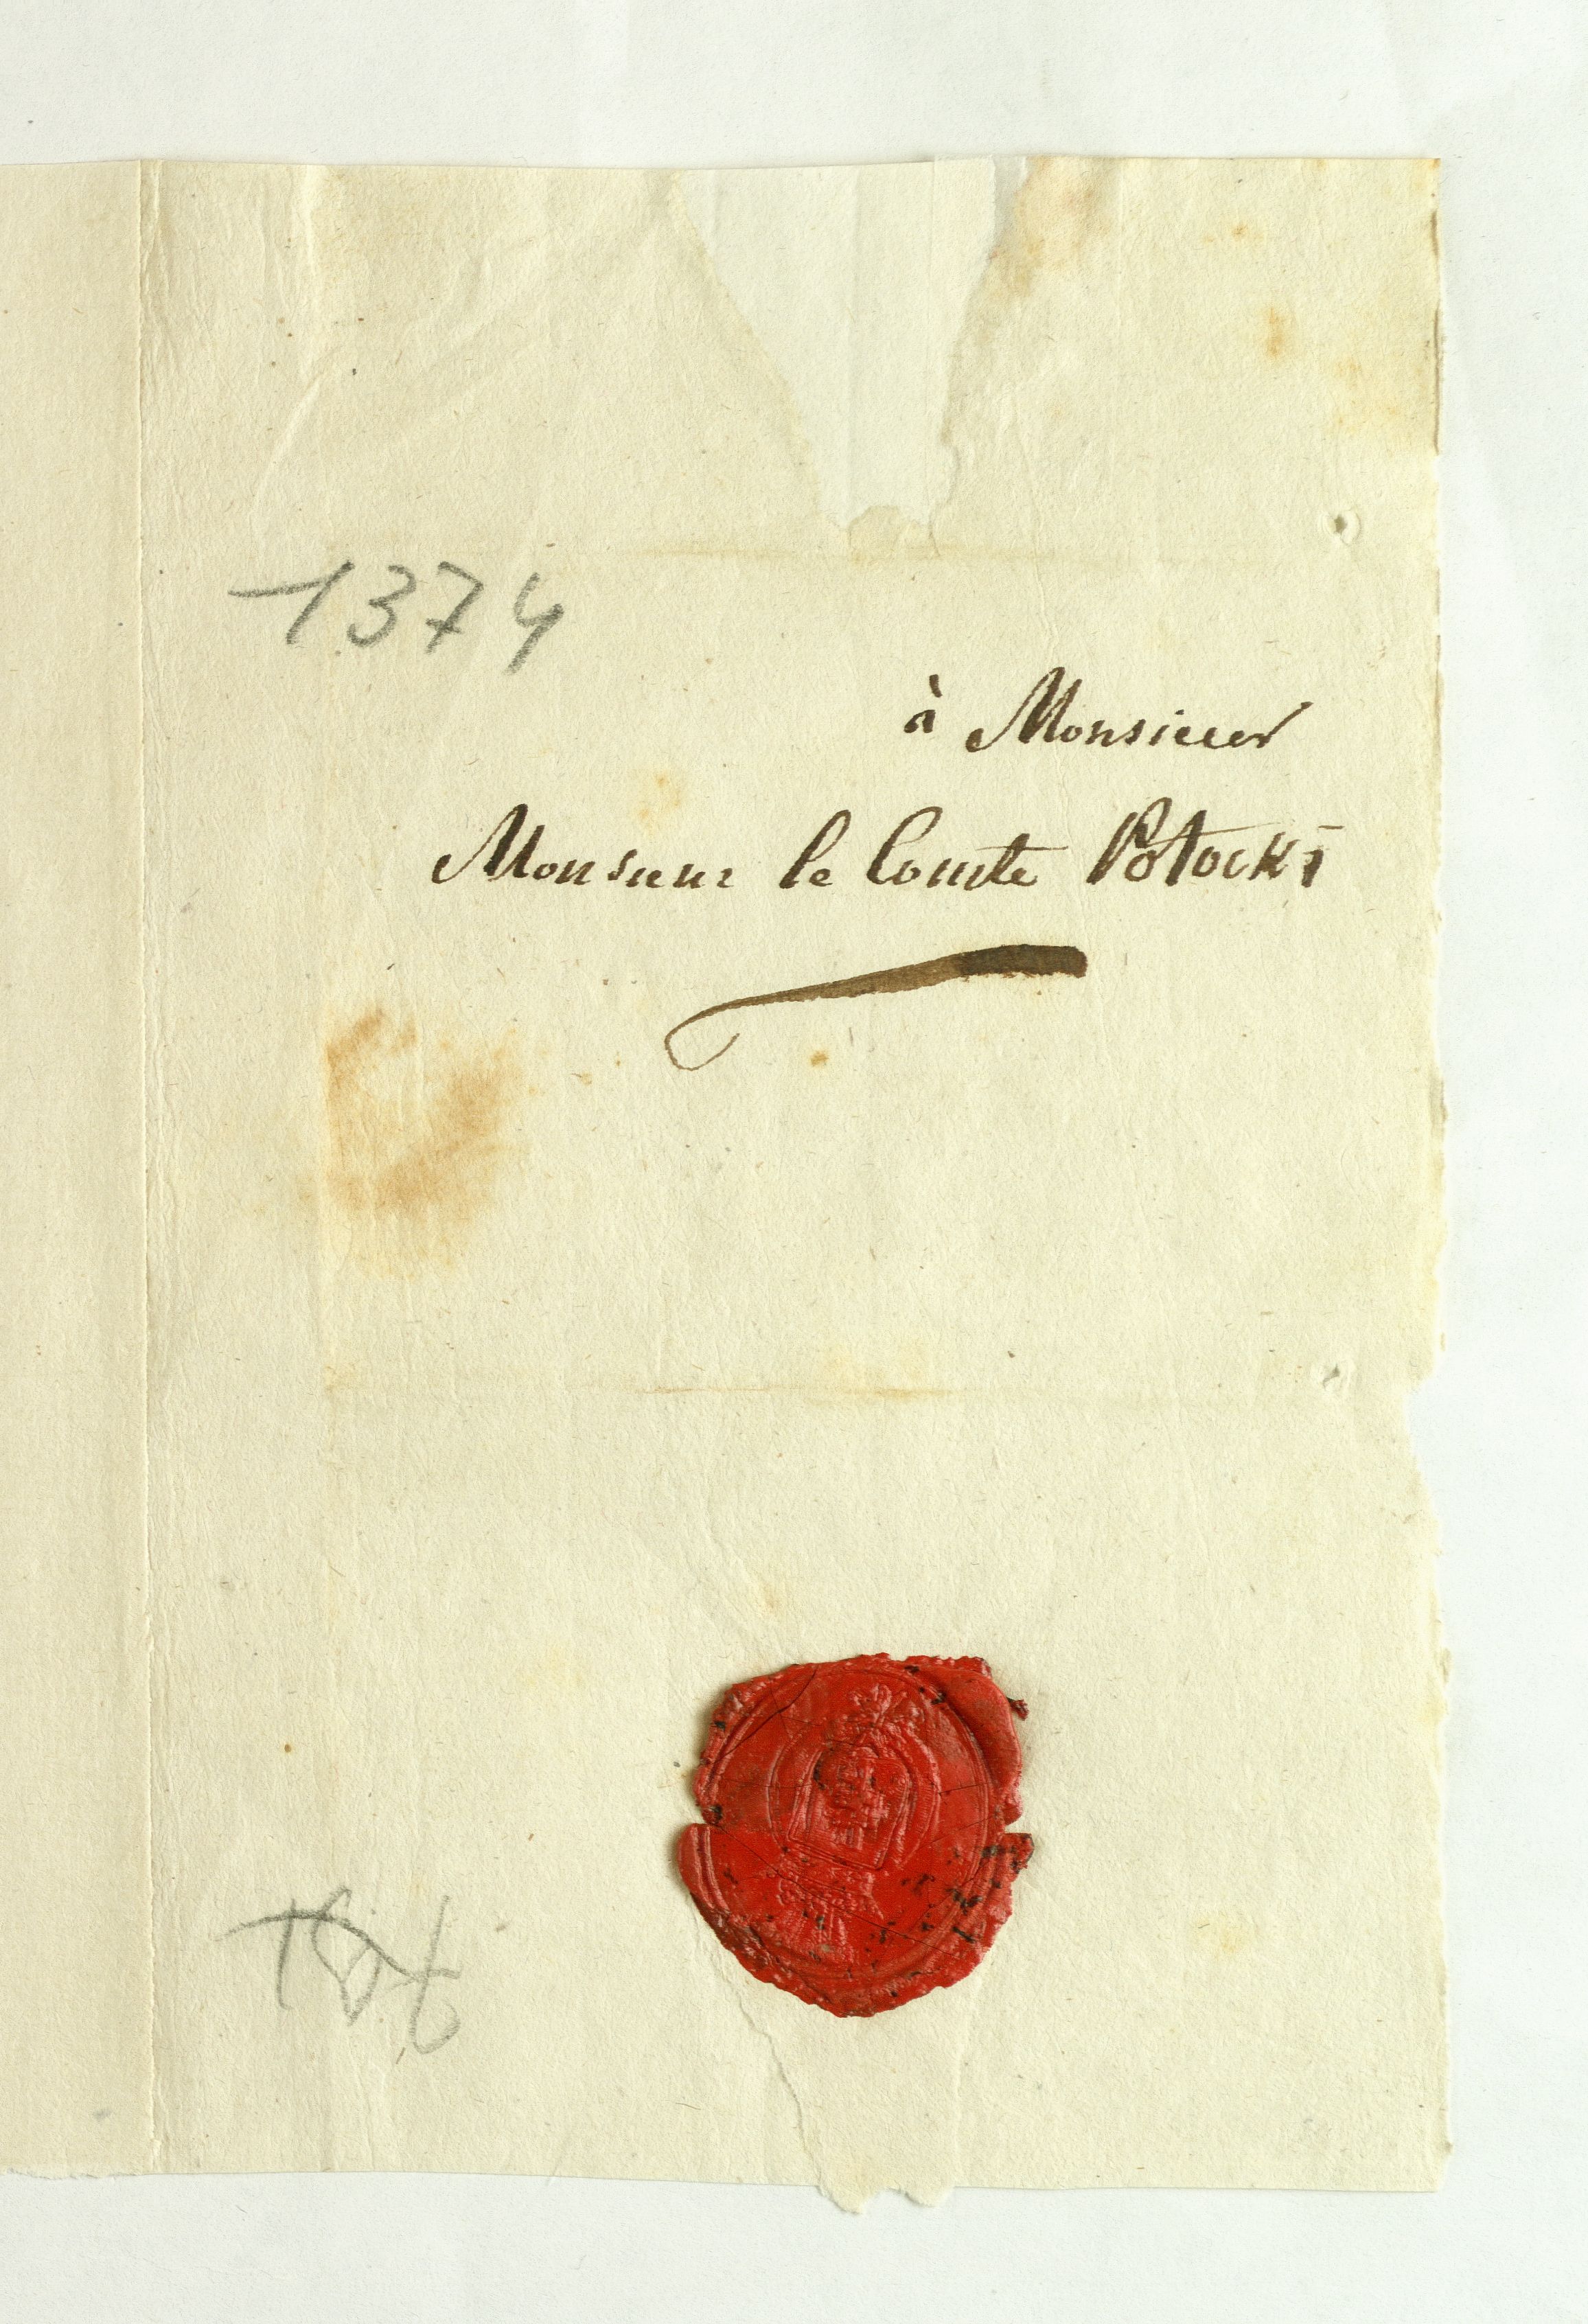 1374
à Monsieur
Monsieur le Comte Potocki